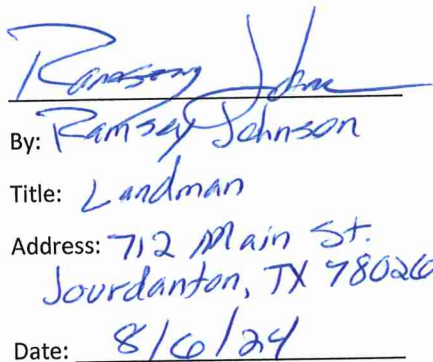 Ramsey Johnson
By: Ramsey Johnson
Title: Landman
Address: 712 Main St.
Jourdanton, TX 78026
Date: 8/6/24